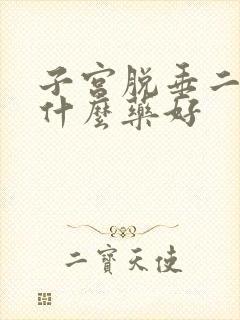 子宮脱垂二
什麼藥好
二寶天使